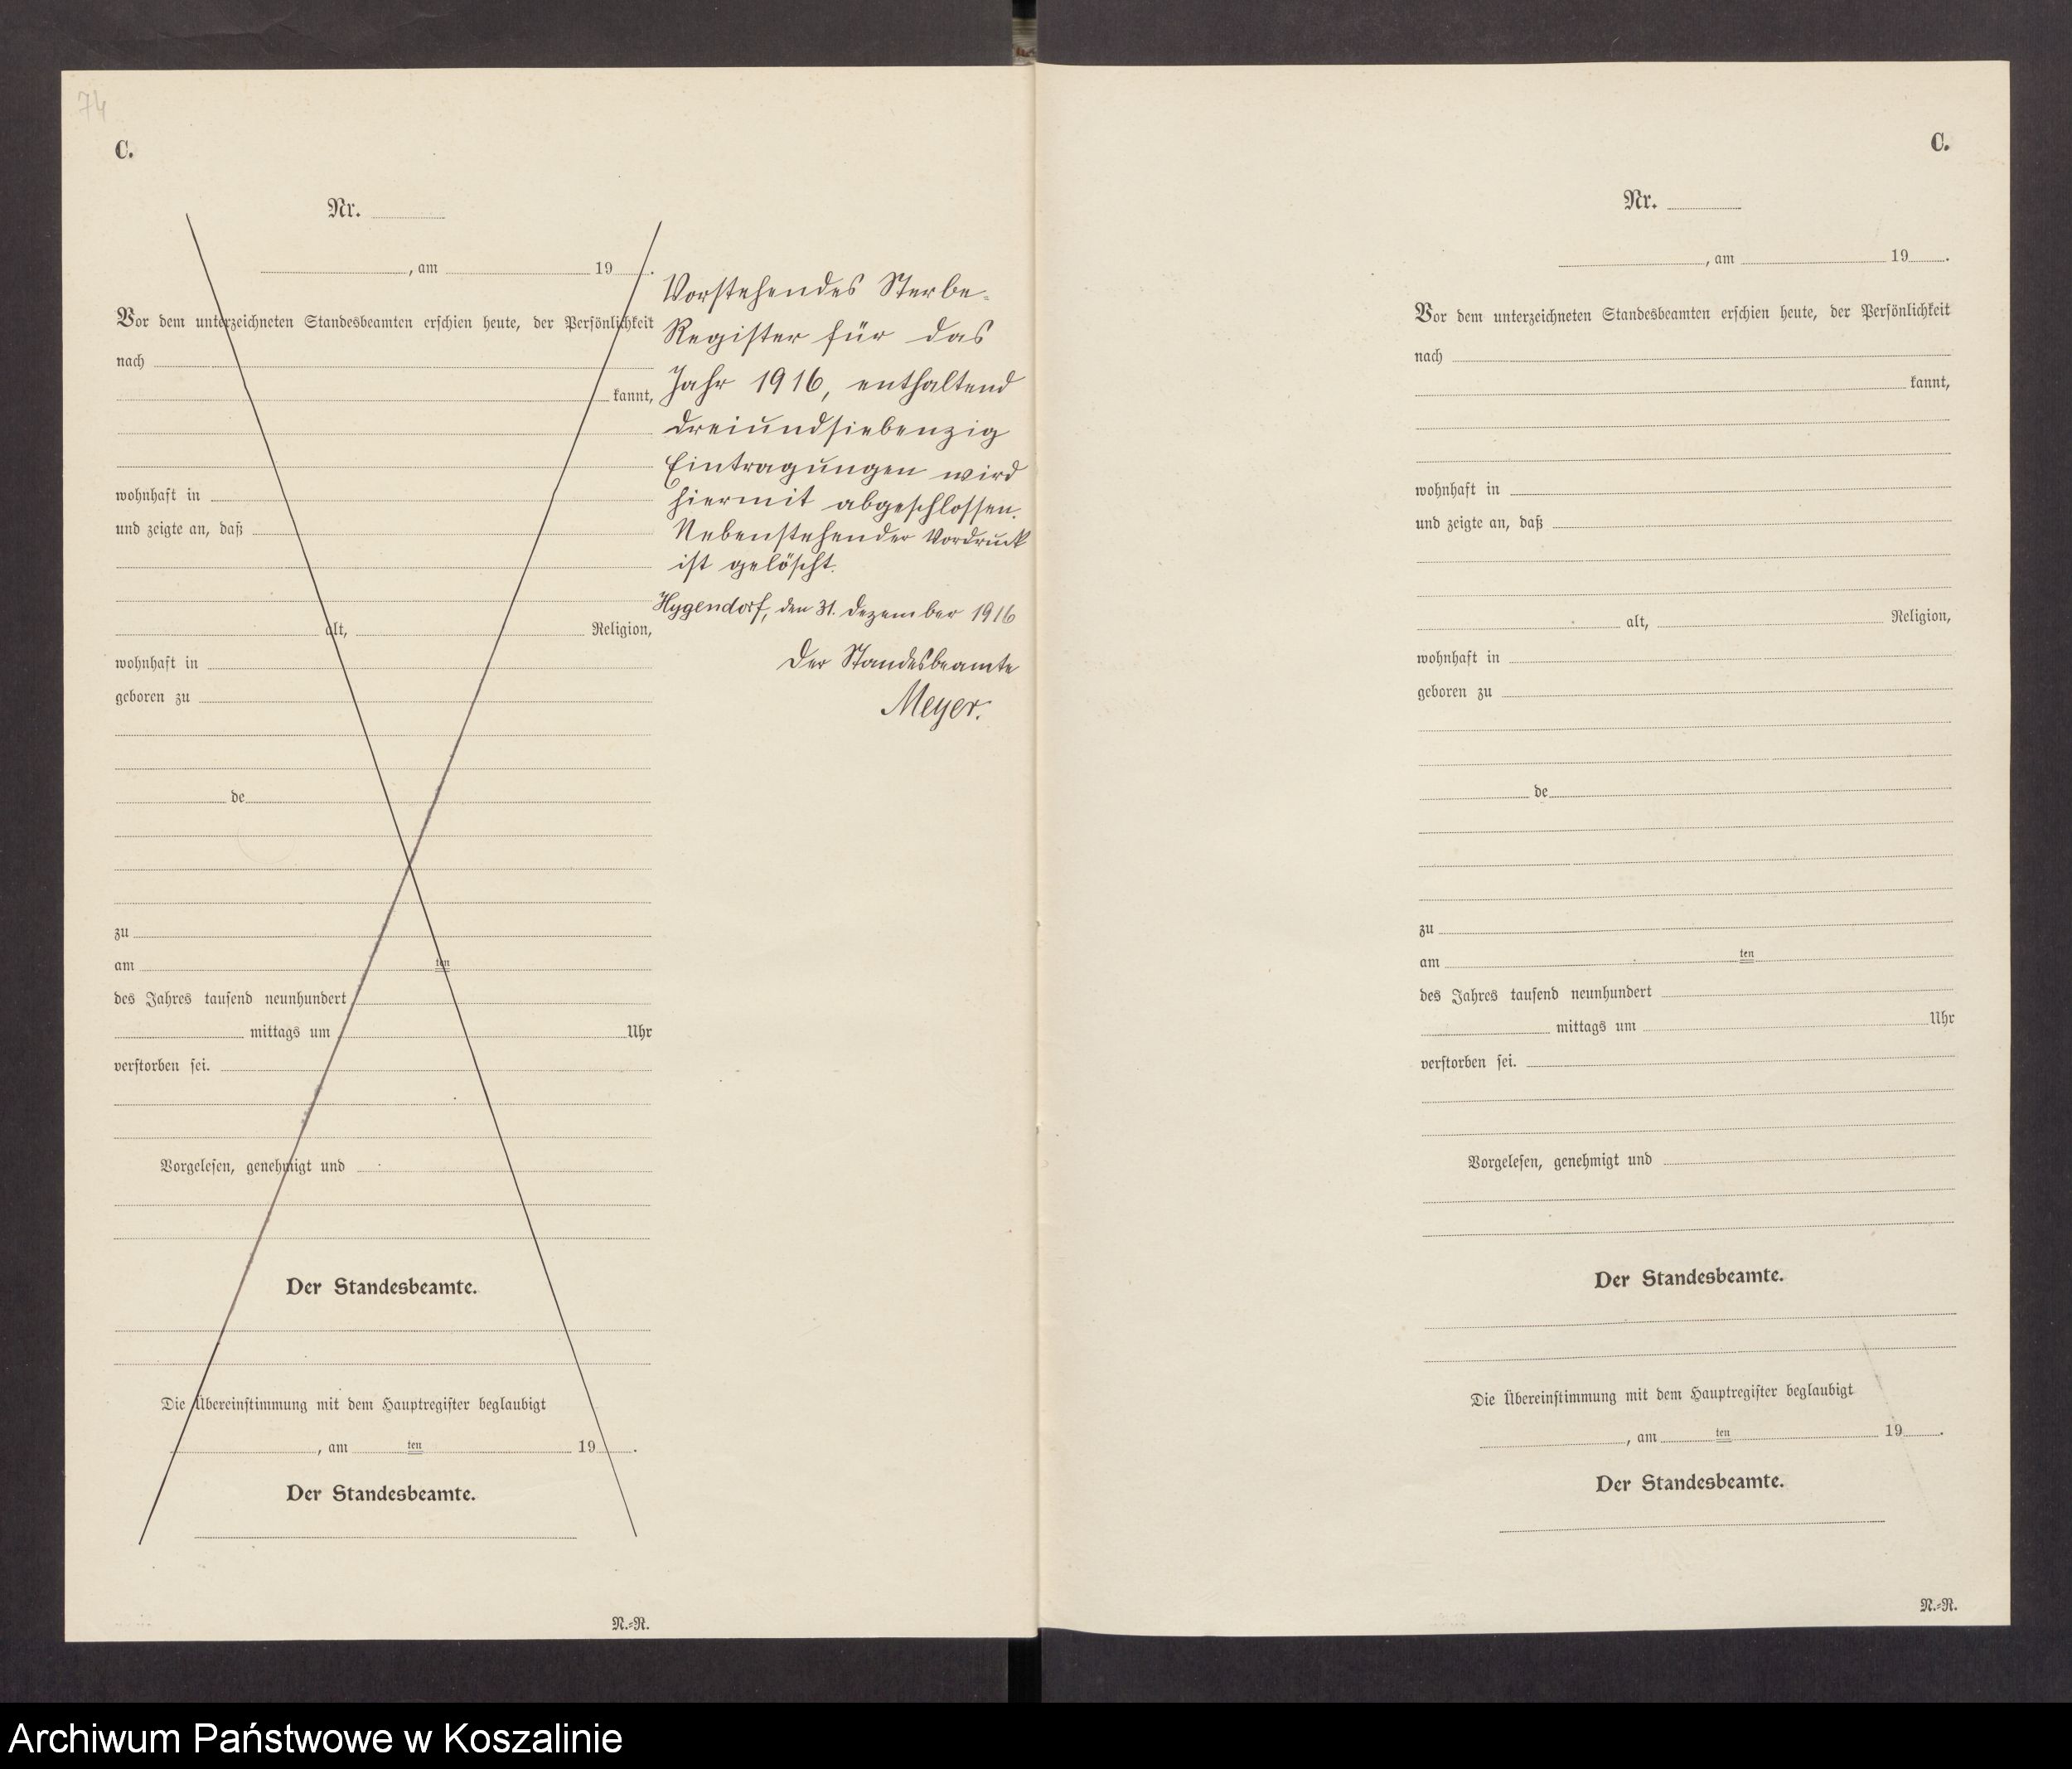 74
C.
Nr.
, am 19 .
Vor dem unterzeichneten Standesbeamten erschien heute, der Persönlichkeit
nach
kannt,
wohnhaft in
und zeigte an, daß
alt, Religion,
wohnhaft in
geboren zu
de
zu
am ten
des Jahres tausend neunhundert
mittags um Uhr
verstorben sei.
Vorgelesen, genehmigt und
Der Standesbeamte.
Die Übereinstimmung mit dem Hauptregister beglaubigt
, am ten 19 .
Der Standesbeamte.
N.=R.
Vorstehendes Sterbe-
Register für das
Jahr 1916, enthaltend
dreiundsiebenzig
Eintragungen wird
hiermit abgeschlossen.
Nebenstehender Vordruck
ist gelöscht.
Hygendorf, den 31. Dezember 1916
Der Standesbeamte
Meyer.
C.
Nr.
, am 19 .
Vor dem unterzeichneten Standesbeamten erschien heute, der Persönlichkeit
nach
kannt,
wohnhaft in
und zeigte an, daß
alt, Religion,
wohnhaft in
geboren zu
de
zu
am ten
des Jahres tausend neunhundert
mittags um Uhr
verstorben sei.
Vorgelesen, genehmigt und
Der Standesbeamte.
Die Übereinstimmung mit dem Hauptregister beglaubigt
, am ten 19 .
Der Standesbeamte.
N.=R.
Archiwum Państwowe w Koszalinie